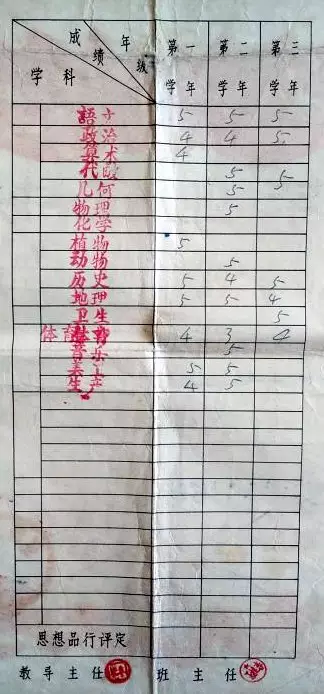 成绩 年级 第一 第二 第三
学科 学年 学年 学年
語 5 5 5
政治 4 4 5
算术 4
代 5 5
几何 5 5
物理 5
化学
植物 5
动物 5
历史 5 4 5
地理 5 5 4
卫生 5
体育 4 3 4
音乐 5
5 5
生产 4 5
思想品行评定
教导主任 班主任